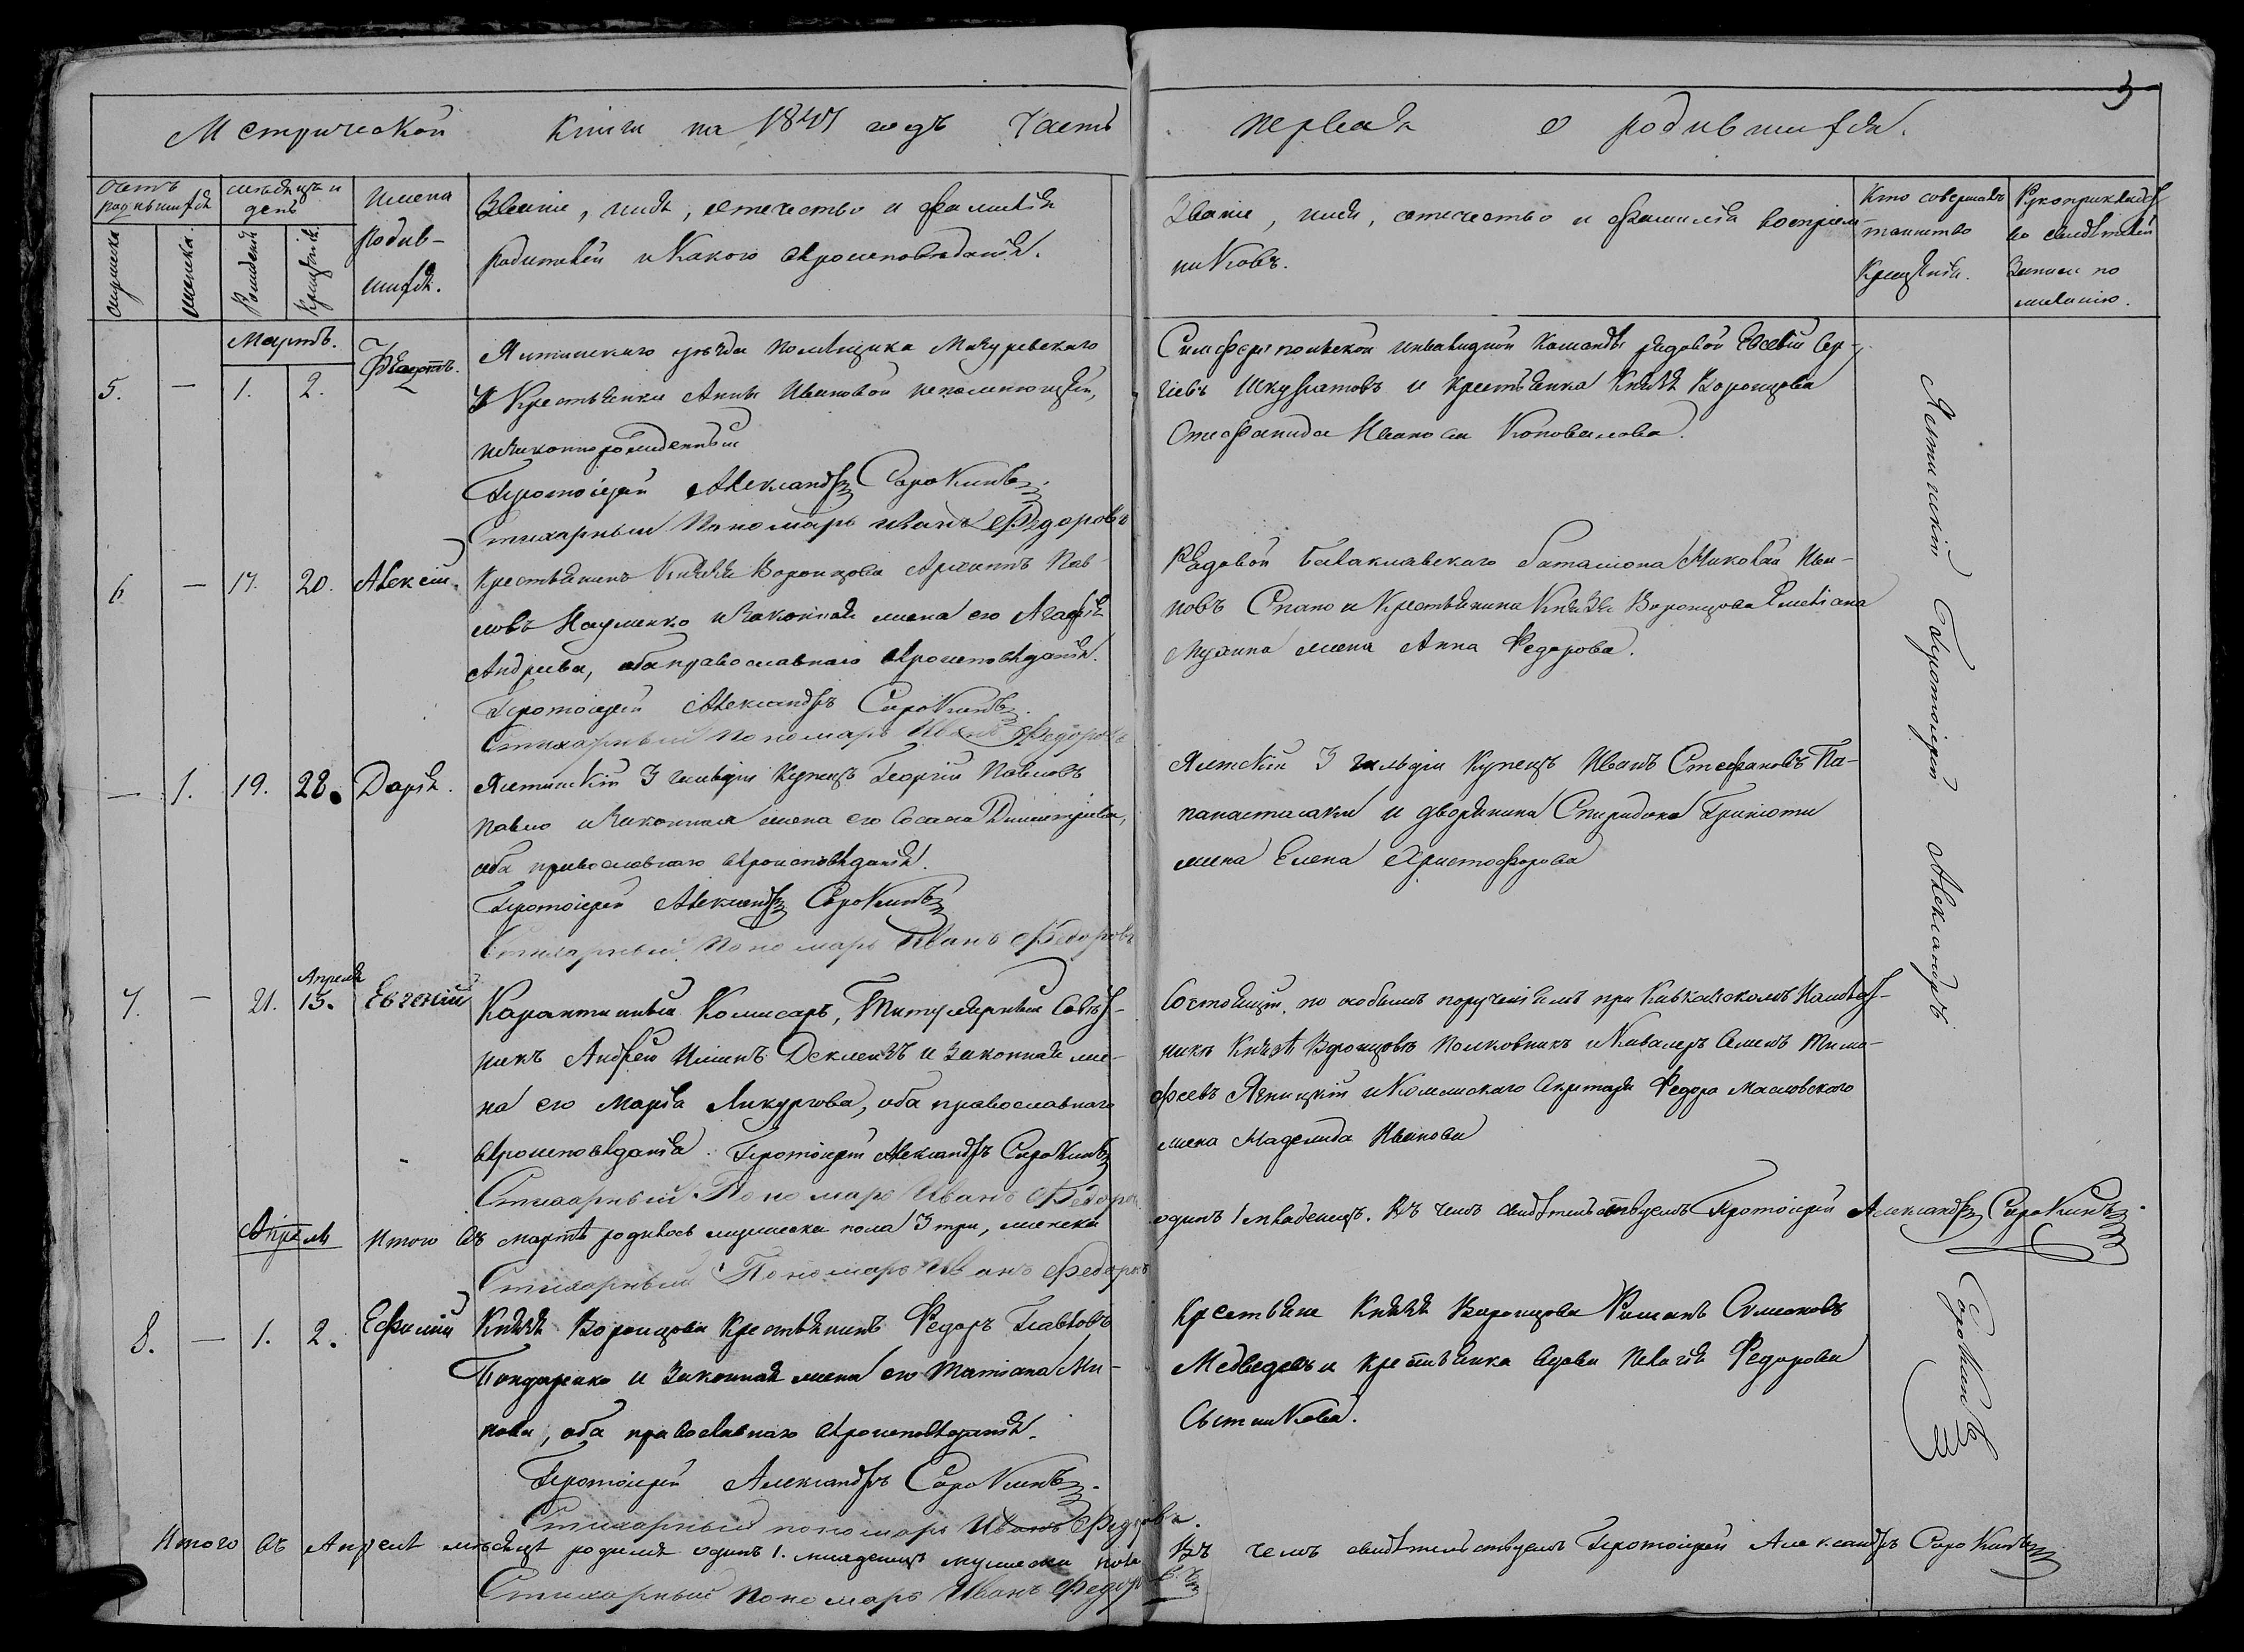 3
Метрической Книги на 1847 годъ Часть первая о родившихся.
Счетъ родившихся
мѣсяцъ и день
Имена родив-
шихся.
мужеска
женска.
Рожденія
Крещенія.
Званіе, имя, отчество и фамилія
родителей и какого вѣроисповѣданія.
Званіе, имя, отчество и фамилія воспріем-
никовъ.
Кто совершалъ
таинство
Крещенія.
Рукоприкладс
во свидѣтелей
Записи по
желанію.
Мартъ.
5. — 1. 2.
Ялтинскаго уѣзда помѣщика
Крестьянки Анны Ивановой
незаконнорожденный
Протоіерей Александръ Сорокинъ
Стихарный Пономарь Иванъ Федоровъ
Симферопольской инвалидной Команды рядовой Евсевій Сер-
гіевъ Шкуратовъ и крестьянка Князя Воронцова
Стефанида Иванова Коновалова.
6 — 17. 20. Алексій.
Крестьянинъ Князя Воронцова Архиппъ Пав-
ловъ Науменко и Законная жена его Агафія
Андреева, оба православнаго вѣроисповѣданія.
Протоіерей Александръ Сорокинъ
Стихарный пономарь Иванъ Федоровъ
Рядовой Балаклавскаго баталіона Николай Ива-
новъ Спано и Крестьянина Князя Воронцова Емеліана
Мухина жена Анна Федорова.
— 1. 19. 28. Дарія.
Ялтинскій 3 гильдіи Купецъ Георгій Павловъ
Павло и Законная жена его Сосана Димитріева,
оба православнаго вѣроисповѣданія.
Протоіерей Александръ Сорокинъ
Стихарный Пономарь Иванъ Федоровъ
Ялтскій 3 гильдіи Купецъ Иванъ Стефановъ Па-
панастасаки и дворянина Спиридона
жена Елена Христофорова
Апреля
7. — 21. 15. Евгеній
Карантинный Комисаръ, Титулярный Совѣт-
никъ Андрей Ильинъ и Законная же-
на его Марія Ликургова, оба православнаго
вѣроисповѣданія. Протоіерей Александръ Сорокинъ
Стихарный Пономарь Иванъ Федоровъ
Состоящій по особымъ порученіямъ при Кавказскомъ Намѣст-
никѣ Князѣ Воронцовѣ Полковникъ и Кавалеръ Семенъ Тимо-
феевъ и Секретаря Федора Масловскаго
жена Надежда Иванова
Итого въ мартѣ родилось мужеска пола 3 три, женска
одинъ 1 младенецъ. Въ чемъ свидѣтельствуемъ Протоіерей Александръ Сорокинъ.
Стихарный Пономарь Иванъ Федоровъ
Апрель
8. — 1. 2. Ефимій
Князя Воронцова Крестьянинъ Федоръ Павловъ
Бондаренко и Законная жена его Татіана
нова, оба православнаго вѣроисповѣданія.
Протоіерей Александръ Сорокинъ.
Стихарный пономарь Иванъ Федоровъ.
Крестьяне Князя Воронцова Романъ Симеоновъ
Медведевъ и крестьянка вдова Пелагія Федорова
Сытникова.
Итого въ Апрелѣ мѣсяцѣ родился одинъ 1. младенецъ мужеска пола
Въ чемъ свидѣтельствуемъ Протоіерей Александръ Сорокинъ
Стихарный Пономарь Иванъ Федоровъ
Ялтинскій Протоіерей Александръ Сорокинъ